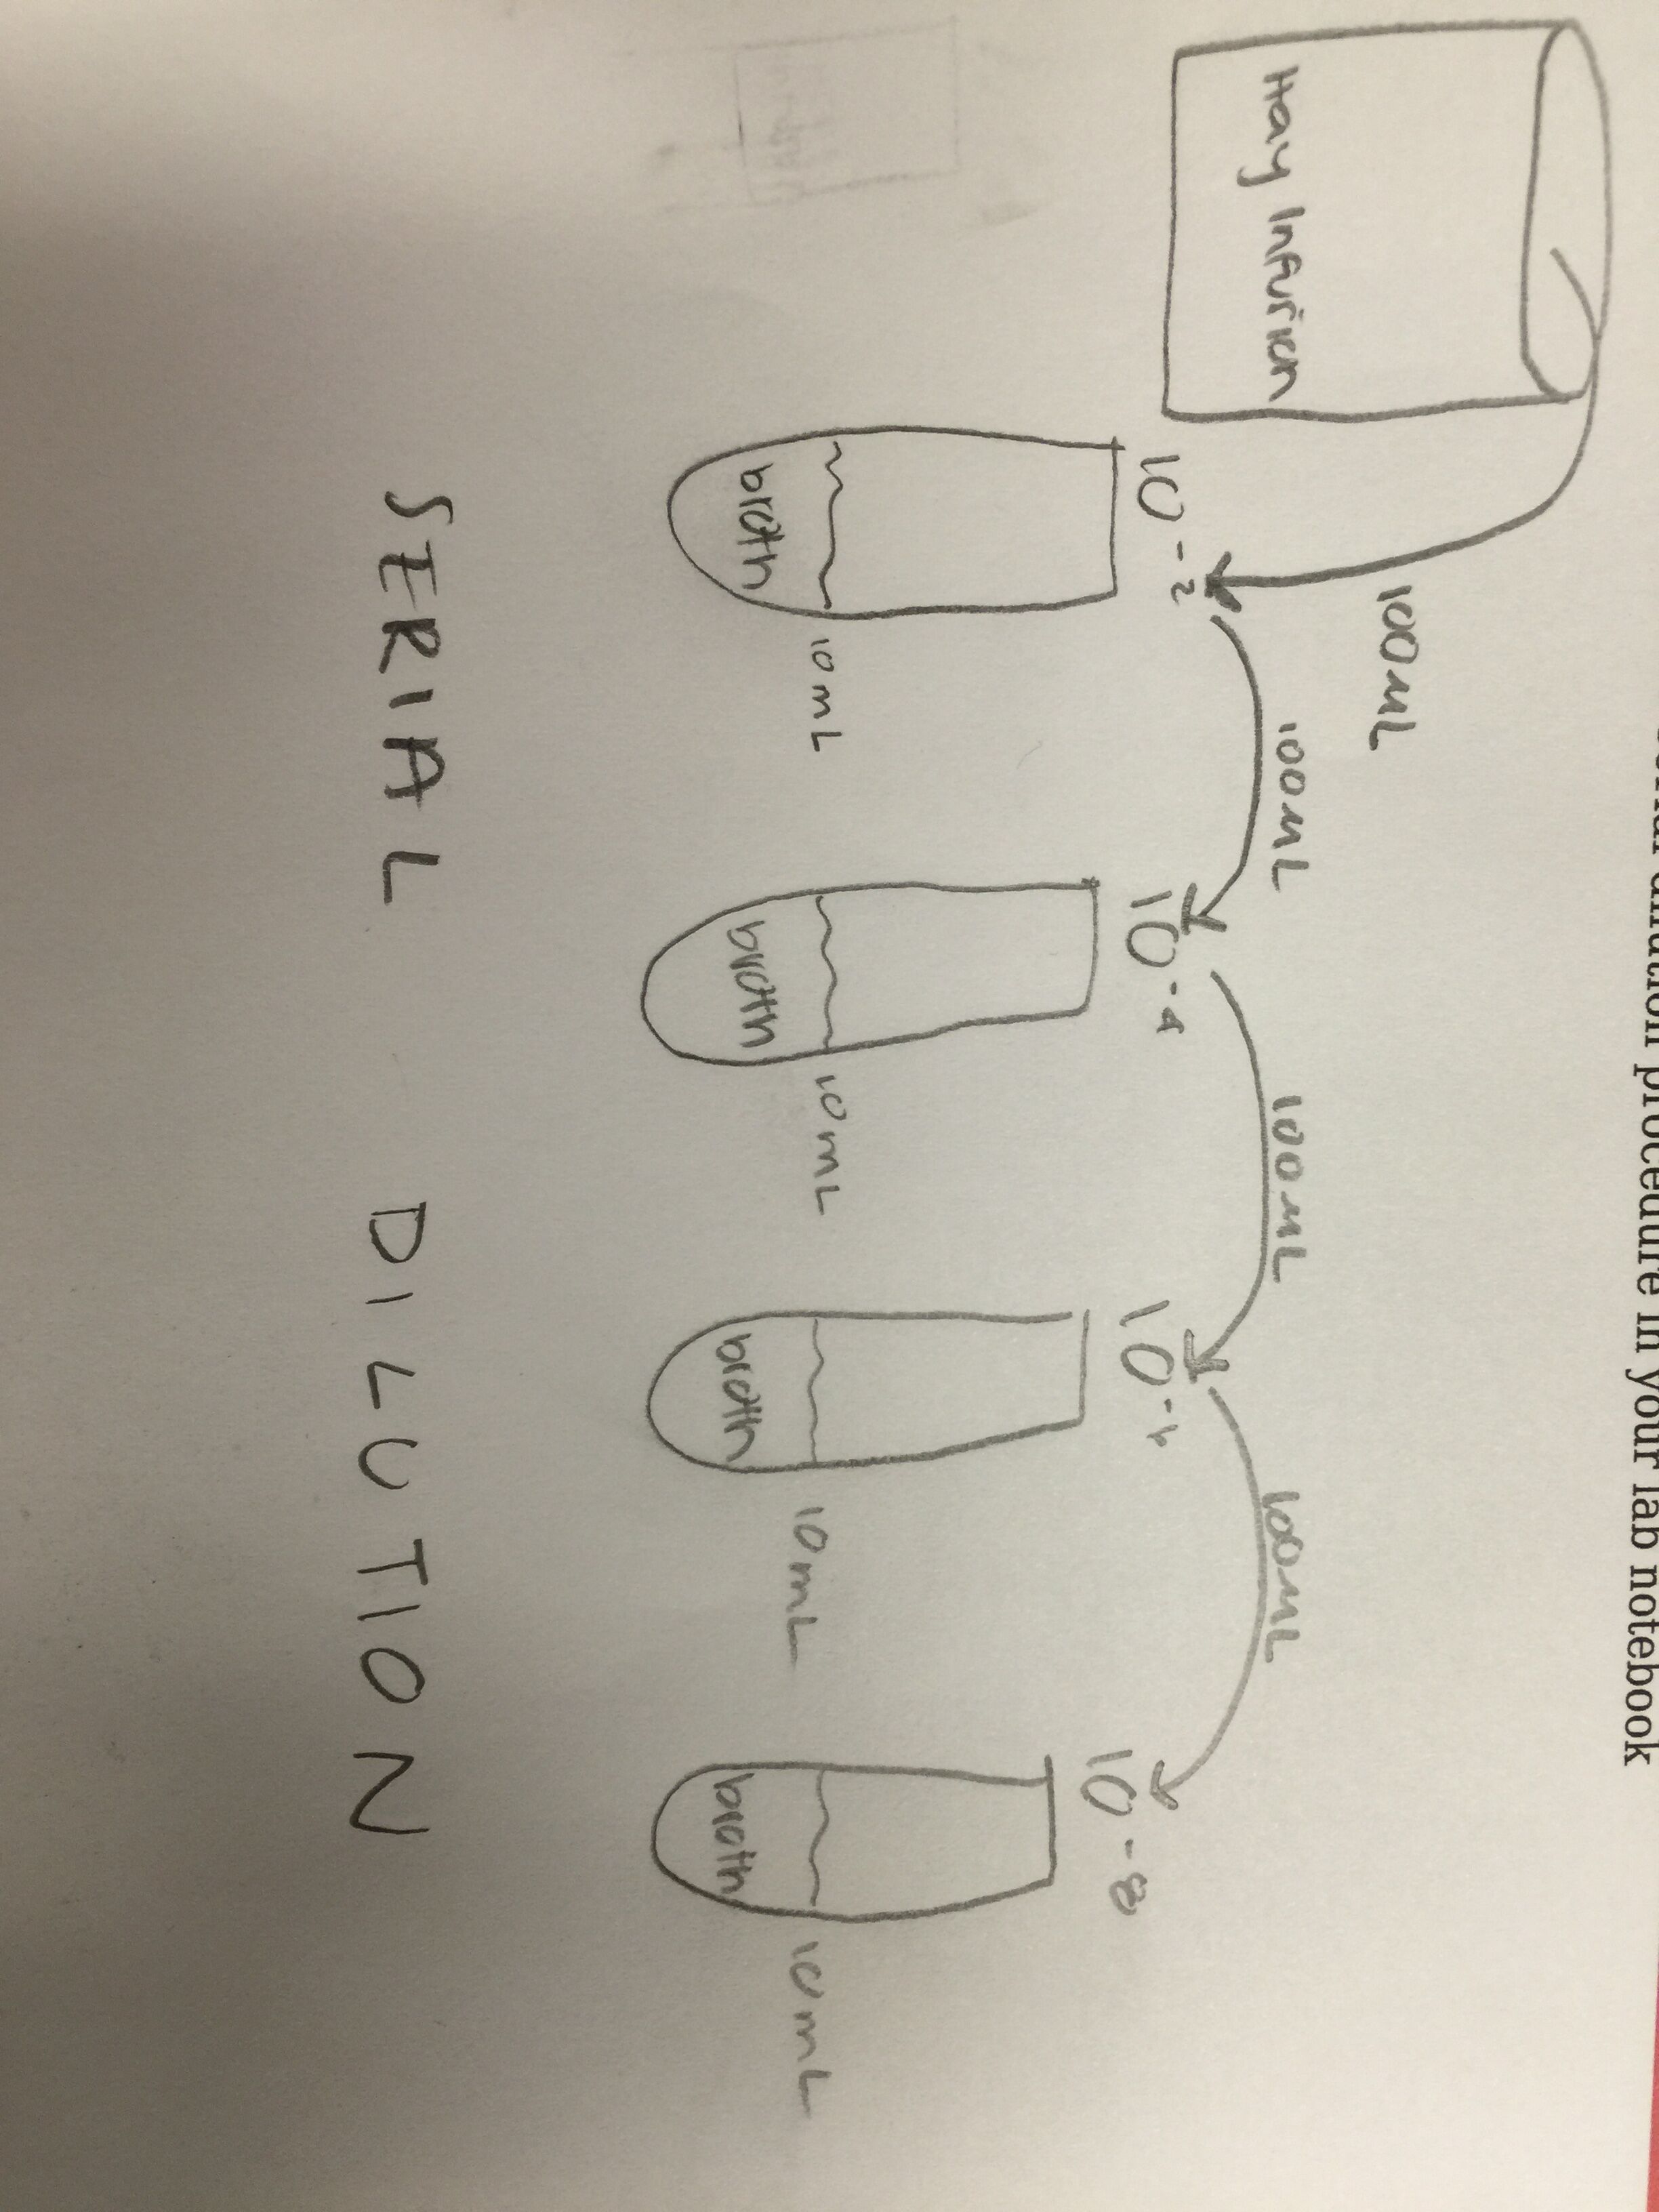 dilution procedure in your lab notebook
Hay Infusion
100μL
100μL
100μL
100μL
10-2
10-4
10-6
10-8
broth
10mL
broth
10mL
broth
10mL
broth
10mL
SERIAL DILUTION